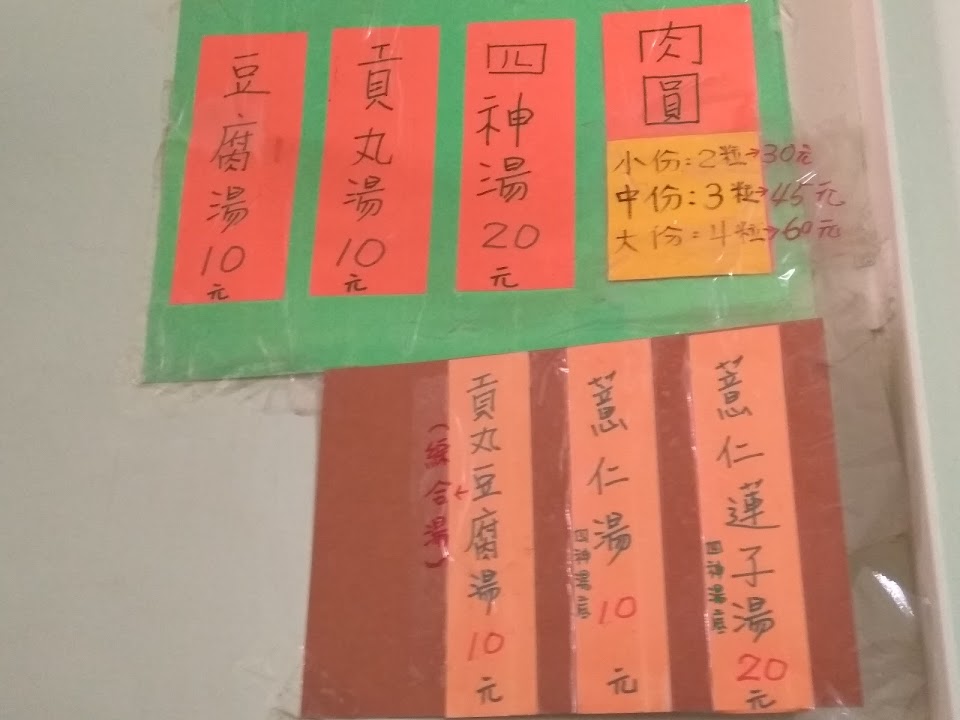 肉圓
小份:2粒→30元
中份:3粒→45元
大份:4粒→60元
四神湯20元
貢丸湯10元
豆腐湯10元
薏仁蓮子湯20元
四神湯底
薏仁湯10元
四神湯底
貢丸豆腐湯10元
(綜合湯)←